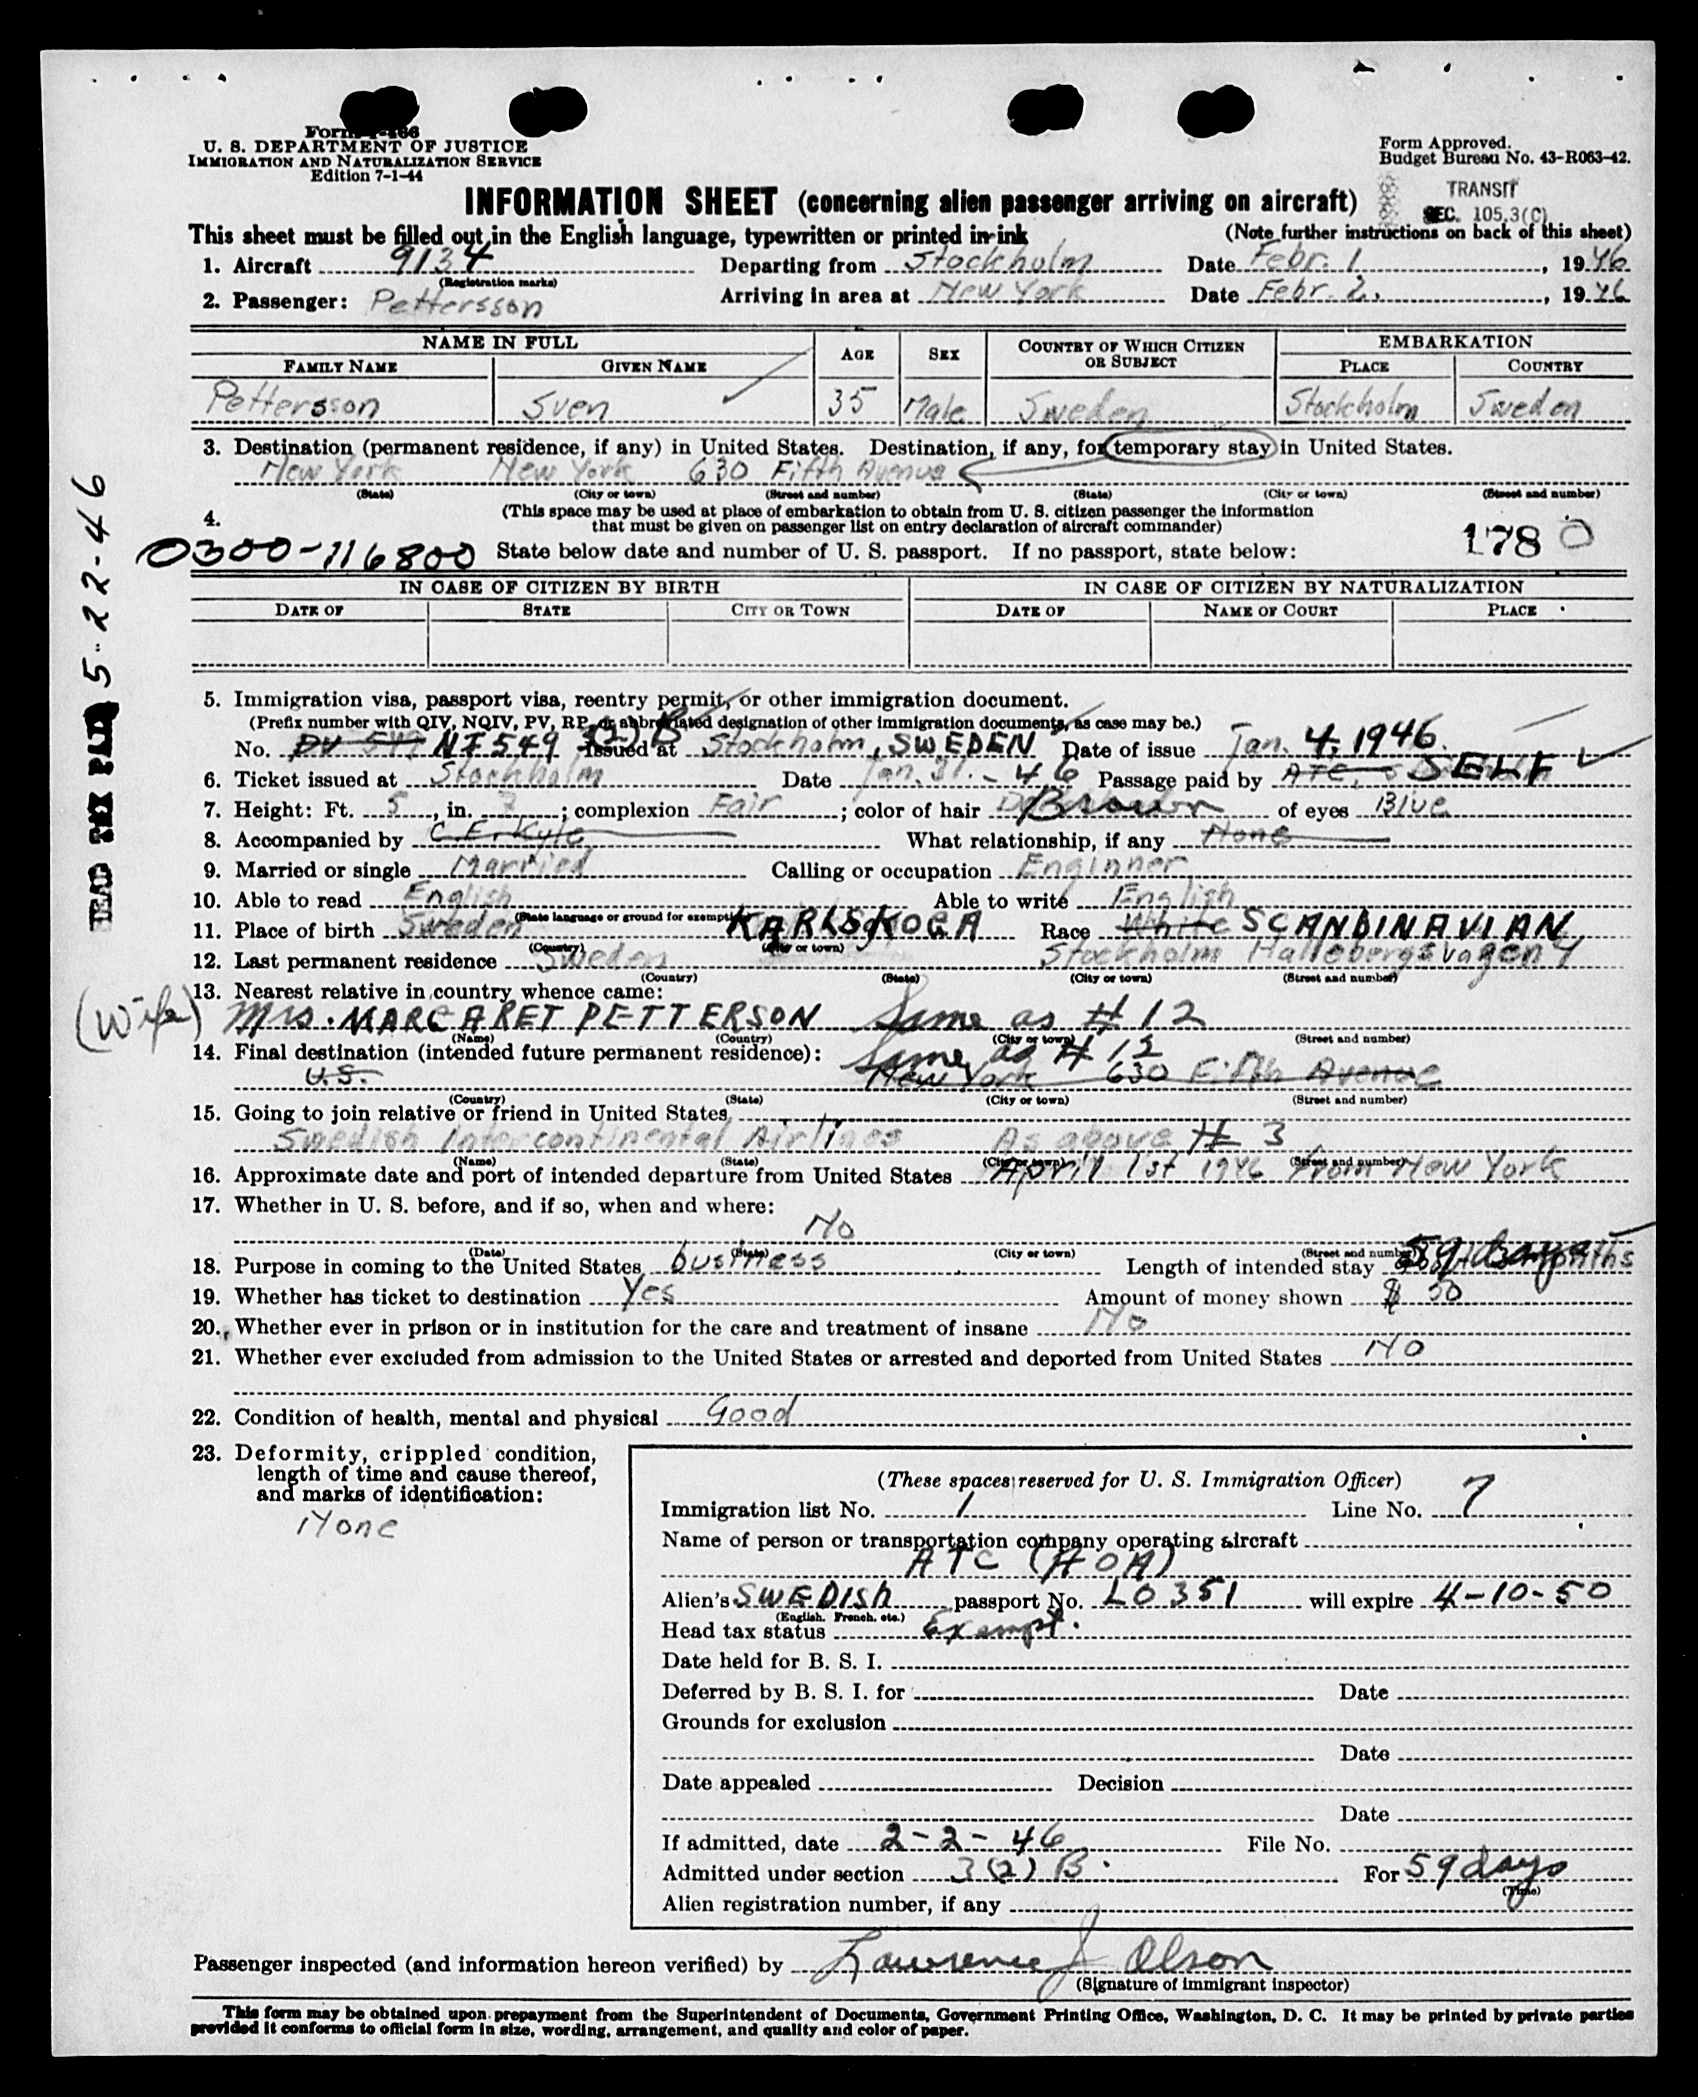 Form I-466
U. S. DEPARTMENT OF JUSTICE
IMMIGRATION AND NATURALIZATION SERVICE
Edition 7-1-44
Form Approved.
Budget Bureau No. 43-R063-42.
TRANSIT
SEC. 105.3(C)
INFORMATION SHEET (concerning alien passenger arriving on aircraft)
This sheet must be filled out in the English language, typewritten or printed in ink (Note further instructions on back of this sheet)
1. Aircraft 9134 Departing from Stockholm Date Febr. 1, 1946
(Registration marks)
2. Passenger: Pettersson Arriving in area at New York Date Febr. 2, 1946
NAME IN FULL AGE SEX COUNTRY OF WHICH CITIZEN OR SUBJECT EMBARKATION
FAMILY NAME GIVEN NAME PLACE COUNTRY
Pettersson Sven 35 Male Sweden Stockholm Sweden
3. Destination (permanent residence, if any) in United States. Destination, if any, for temporary stay in United States.
New York New York 630 Fifth Avenue
(State) (City or town) (Street and number) (State) (City or town) (Street and number)
4. (This space may be used at place of embarkation to obtain from U. S. citizen passenger the information
that must be given on passenger list on entry declaration of aircraft commander)
0300-116800 State below date and number of U. S. passport. If no passport, state below: 178 0
IN CASE OF CITIZEN BY BIRTH IN CASE OF CITIZEN BY NATURALIZATION
DATE OF STATE CITY OR TOWN DATE OF NAME OF COURT PLACE
HEAD TAX PAID 5-22-46
5. Immigration visa, passport visa, reentry permit, or other immigration document.
(Prefix number with QIV, NQIV, PV, RP, or abbreviated designation of other immigration documents, as case may be.)
No. PV 549 NI 549 3(2) B Issued at Stockholm, SWEDEN Date of issue Jan. 4, 1946.
6. Ticket issued at Stockholm Date Jan. 31. - 46 Passage paid by ATC, SELF
7. Height: Ft. 5, in. 7; complexion Fair; color of hair Brown of eyes Blue
8. Accompanied by C. E. Kyle What relationship, if any None
9. Married or single Married Calling or occupation Enginner
10. Able to read English Able to write English
(State language or ground for exemption)
11. Place of birth Sweden KARLSKOGA Race White SCANDINAVIAN
(Country) (City or town)
12. Last permanent residence Sweden Stockholm Hallebergsvagen 4
(Country) (State) (City or town) (Street and number)
13. Nearest relative in country whence came:
(Wife) Mrs. MARGARET PETTERSON Same as # 12
(Name) (Country) (City or town) (Street and number)
14. Final destination (intended future permanent residence): Same as # 12
U.S. New York 630 Fifth Avenue
(Country) (State) (City or town) (Street and number)
15. Going to join relative or friend in United States
Swedish Intercontinental Airlines As above # 3
(Name) (State) (City or town) (Street and number)
16. Approximate date and port of intended departure from United States April 1st 1946 from New York
17. Whether in U. S. before, and if so, when and where:
No
(Date) (State) (City or town) (Street and number)
18. Purpose in coming to the United States business Length of intended stay 59 days months
19. Whether has ticket to destination Yes Amount of money shown $ 50
20. Whether ever in prison or in institution for the care and treatment of insane No
21. Whether ever excluded from admission to the United States or arrested and deported from United States No
22. Condition of health, mental and physical Good
23. Deformity, crippled condition,
length of time and cause thereof,
and marks of identification:
None
(These spaces reserved for U. S. Immigration Officer)
Immigration list No. 1 Line No. 7
Name of person or transportation company operating aircraft
ATC (AOA)
Alien's SWEDISH passport No. LO351 will expire 4-10-50
(English, French, etc.)
Head tax status Exempt.
Date held for B. S. I.
Deferred by B. S. I. for Date
Grounds for exclusion
Date
Date appealed Decision
Date
If admitted, date 2-2-46 File No.
Admitted under section 3(2) B. For 59 days
(Time)
Alien registration number, if any
Passenger inspected (and information hereon verified) by Lawrence J Olson
(Signature of immigrant inspector)
This form may be obtained upon prepayment from the Superintendent of Documents, Government Printing Office, Washington, D. C. It may be printed by private parties
provided it conforms to official form in size, wording, arrangement, and quality and color of paper.